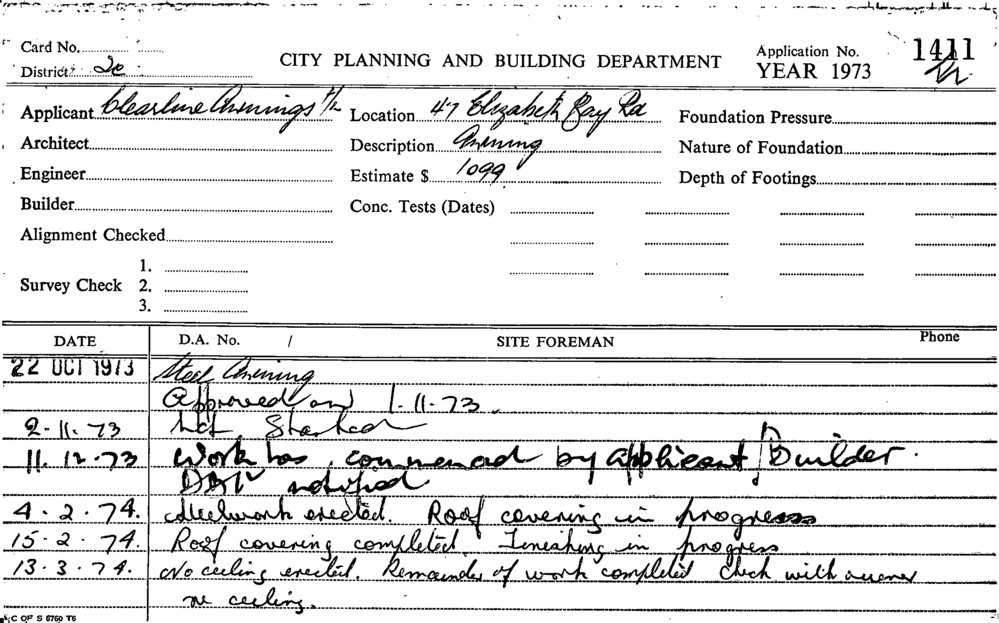 Card No.
District 2c
CITY PLANNING AND BUILDING DEPARTMENT
Application No. 1411
YEAR 1973
Applicant Clearline Awnings P/L
Location 47 Elizabeth Bay Rd
Foundation Pressure
Architect
Description Awning
Nature of Foundation
Engineer
Estimate $ 1099
Depth of Footings
Builder
Conc. Tests (Dates)
Alignment Checked
Survey Check 1.
2.
3.
DATE D.A. No. / SITE FOREMAN Phone
22 OCT 1973 Steel Awning
Approved on 1-11-73.
2-11-73 Not Started
11.12.73 Work has commenced by applicant/Builder.
notified
4.2.74. Steelwork erected. Roof covering in progress
15.2.74. Roof covering completed. Finishing in progress
13.3.74. No ceiling erected. Remainder of work completed check with owner
re ceiling.
C OF S 6760 T6